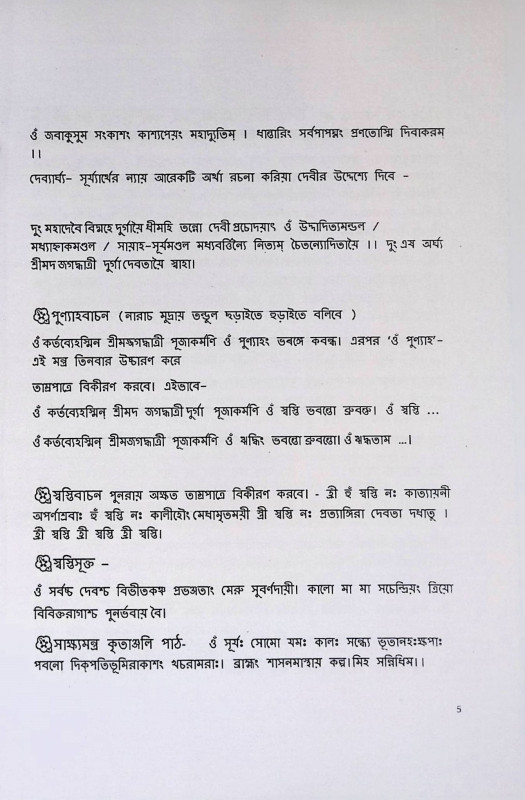 ওঁ জবাকুসুম সংকাশং কাশ্যপেয়ং মহাদ্যুতিম্ । ধান্তারিং সর্বপাপঘ্নং প্রণতোস্মি দিবাকরম্
।।
দেব্যার্ঘ্য- সূর্য্যার্ঘের ন্যায় আরেকটি অর্ঘ্য রচনা করিয়া দেবীর উদ্দেশ্যে দিবে -
দুং মহাদেবৈ বিদ্মহে দূর্গায়ৈ ধীমহি তন্নো দেবী প্রচোদয়াৎ ওঁ উদ্দাদিত্যমন্ডল /
মধ্যাহ্নাকমণ্ডল / সায়াহ্ন-সূর্যমণ্ডল মধ্যবর্ত্তিন্যৈ নিত্যম্ চৈতন্যোদিতায়ৈ ।। দুং এষ অর্ঘ্য
শ্রীমদ জগদ্ধাত্রী দুর্গা দেবতায়ৈ স্বাহা।
পুণ্যাহবাচন (নারাচ মূদ্রায় তন্ডুল ছড়াইতে ছড়াইতে বলিবে )
ওঁ কর্তব্যেহস্মিন্ শ্রীমজ্জগদ্ধাত্রী পূজাকর্মণি ওঁ পূণ্যাহং ভবন্তো কবন্ধ। এরপর ‘ওঁ পূণ্যাহ’-
এই মন্ত্র তিনবার উচ্চারণ করে
তাম্রপাত্রে বিকীরণ করবে। এইভাবে-
ওঁ কর্তব্যেহস্মিন্ শ্রীমদ জগদ্ধাত্রী দুর্গা পূজাকর্মণি ওঁ স্বস্তি ভবন্তো ব্রুবন্তু। ওঁ স্বস্তি ...
ওঁ কর্তব্যেহস্মিন্ শ্রীমজগদ্ধাত্রী পূজাকর্মণি ওঁ ঋদ্ধিং ভবন্তো ব্রুবন্তো। ওঁ ঋদ্ধতাম ...।
স্বস্তিবাচন পুনরায় অক্ষত তাম্রপাত্রে বিকীরণ করবে। - হ্রী হুঁ স্বস্তি নঃ কাত্যায়নী
অপর্ণাশ্রবাঃ হুঁ স্বস্তি নঃ কালীহৌং মেধামৃতময়ী হ্রী স্বস্তি নঃ প্রত্যাঙ্গিরা দেবতা দধাতু ।
হ্রী স্বস্তি হ্রী স্বস্তি হ্রী স্বস্তি।
স্বস্তিসূক্ত -
ওঁ সর্বঞ্চ দেবশ্চ বিভীতকঞ্চ প্রভঞ্জতাং মেরু সুবর্ণদায়ী। কালো মা মা সচেন্দ্রিয়ং ত্রিয়ো
বিবিক্তরাগাশ্চ পুনর্ভবায় বৈ।
সাক্ষ্যমন্ত্র কৃতাঞ্জলি পাঠ- ওঁ সূর্যঃ সোমো যমঃ কালঃ সন্ধ্যে ভূতানহঃক্ষপাঃ
পবনো দিকপতিভূমিরাকাশং খচরামরাঃ। ব্রাহ্মং শাসনমাস্থায় কল্প।মিহ সন্নিধিম।।
5